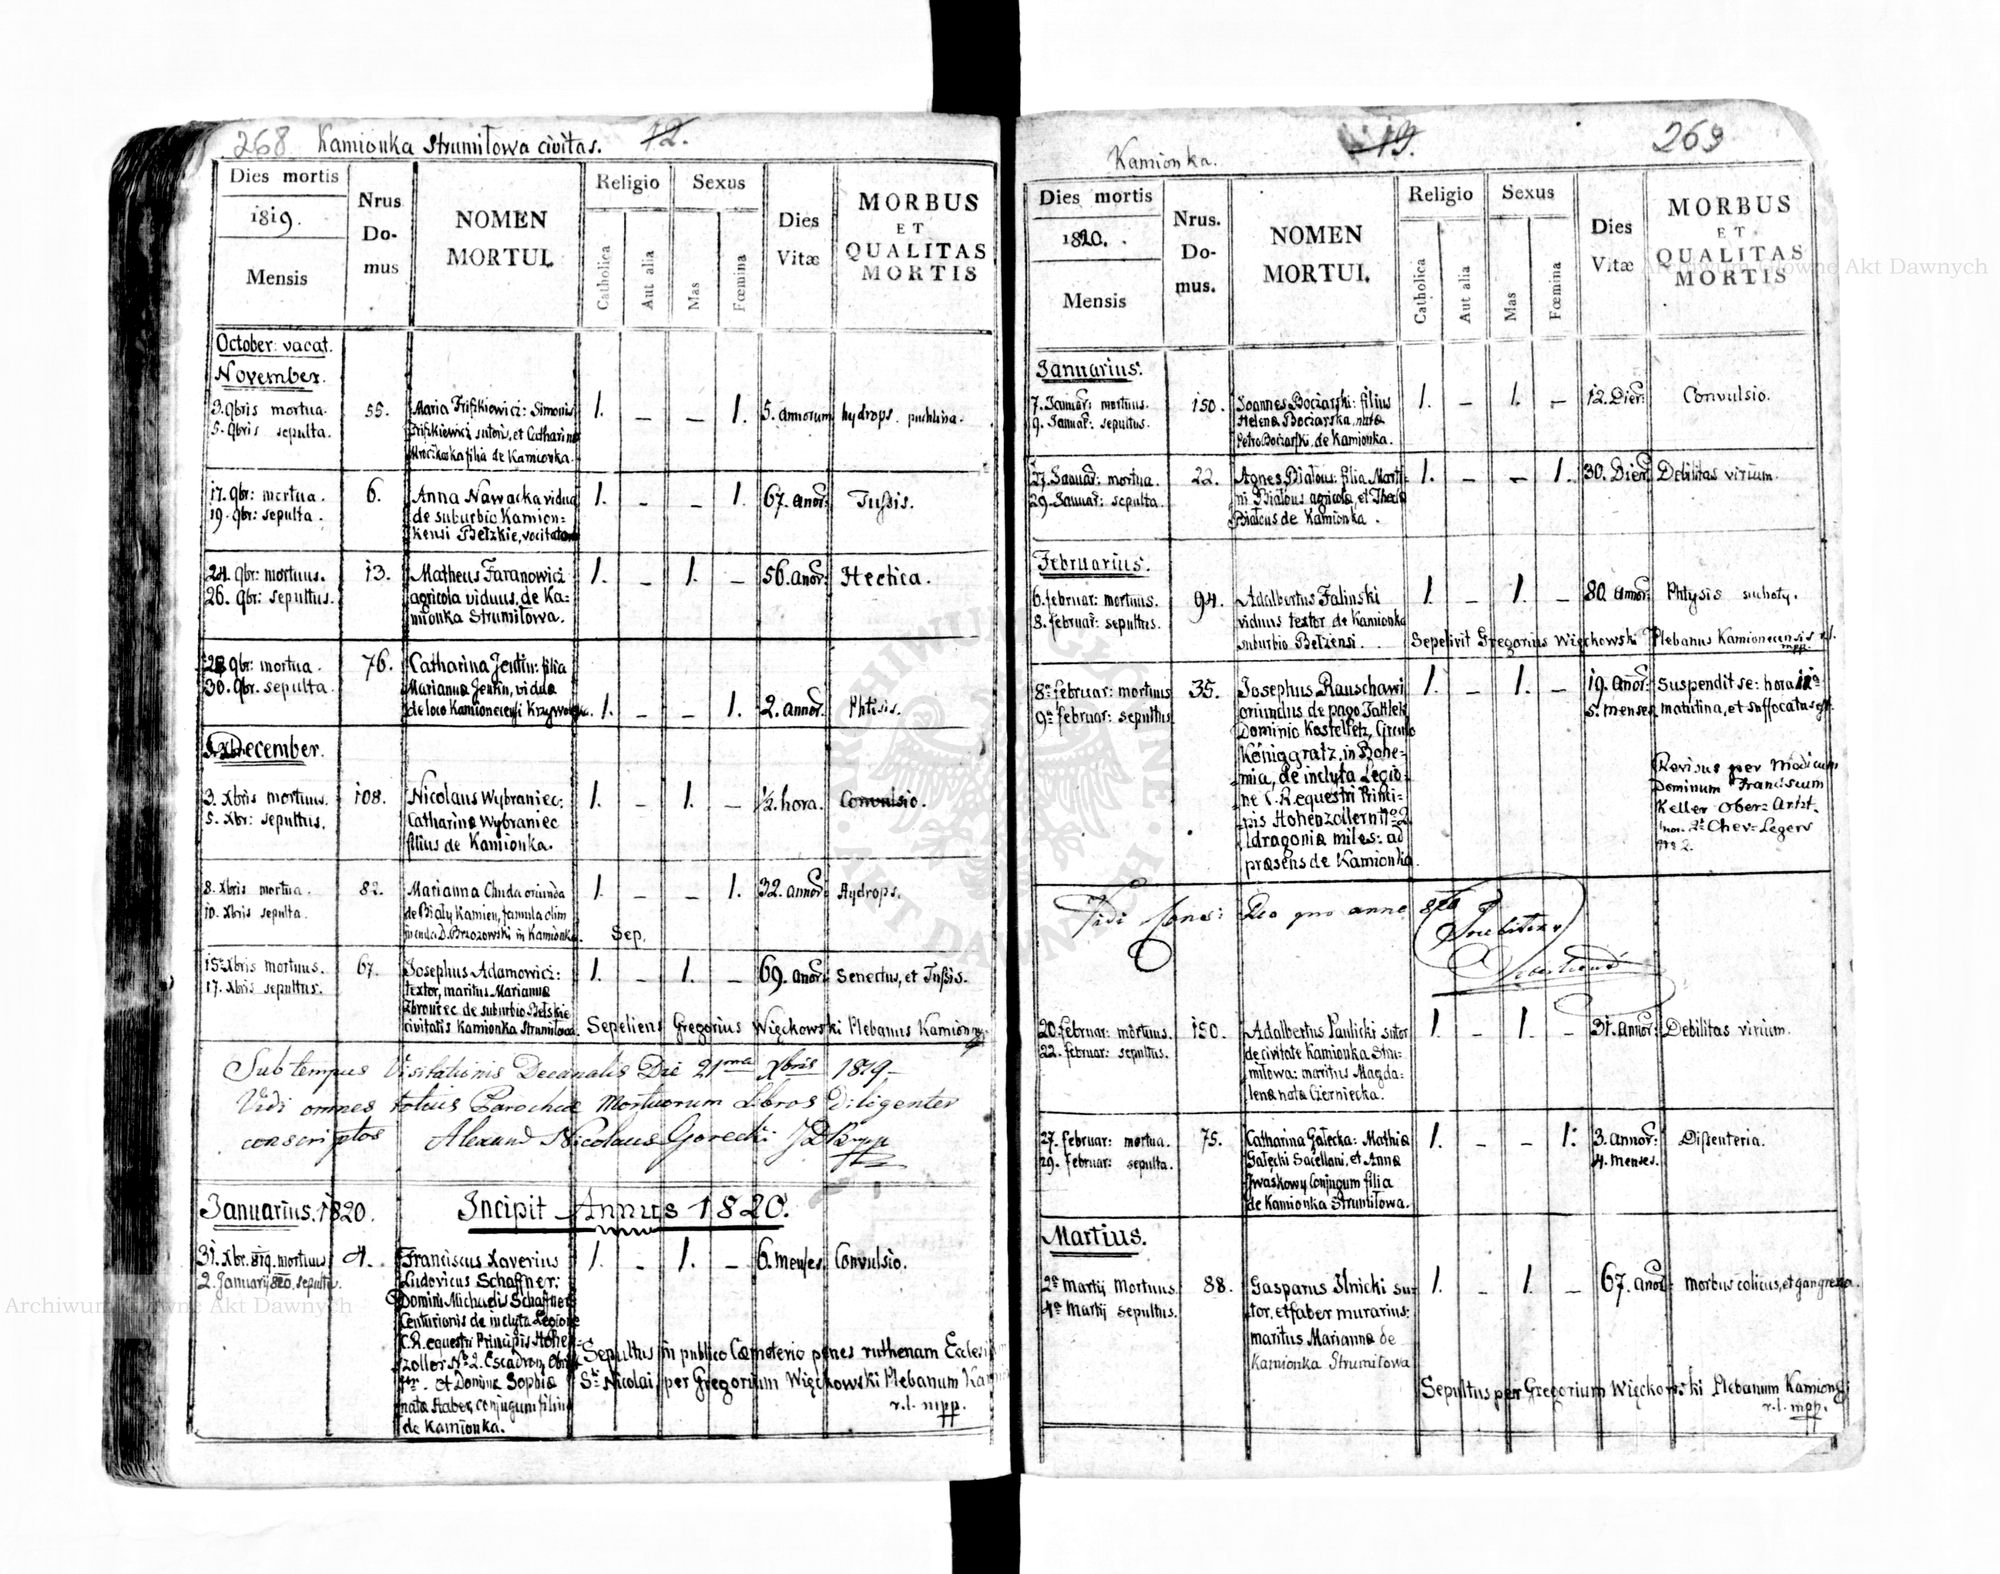 268 Kamionka Strumiłowa civitas. 12.
Dies mortis
1819.
Mensis
Nrus
Do-
mus
NOMEN
MORTUI.
Religio
Catholica
Aut alia
Sexus
Mas
Fœmina
Dies
Vitæ
MORBUS
ET
QUALITAS
MORTIS
October: vacat.
November.
3. 9bris mortua. 55. Maria Friszkiewicz: Simonis 1. – – 1. 5. annorum hydrops puchlina.
5. 9bris sepulta. Friszkiewicz sutoris, et Catharina
filia de Kamionka.
17. 9br: mortua. 6. Anna Nawacka vidua 1. – – 1. 67. anor: Tussis.
19. 9br: sepulta. de suburbio Kamion=
kensi Bełzkie, vocitatam
24. 9br: mortuus. 13. Matheus Faranowicz 1. – 1. – 56. anor: Hectica.
26. 9br: sepultus. agricola viduus, de Ka=
mionka Strumiłowa.
28 9br: mortua. 76. Catharina Jentin: filia
30. 9br. sepulta. Marianna Jentin, vidua
de loco Kamionecensi 1. – – 1. 2. annor. Phtisis.
December.
3. Xbris mortuus. 108. Nicolaus Wybraniec: 1. – 1. – ½. hora. Convulsio.
5. Xbr: sepultus. Catharinæ Wybraniec
filius de Kamionka.
8. Xbris mortua. 82. Marianna Chuda oriunda 1. – – 1. 32. annor: Hydrops.
10. Xbris sepulta. de Biały Kamien, famula olim
D. Brzozowski in Kamionka. Sep.
15. Xbris mortuus. 67. Josephus Adamowicz: 1. – 1. – 69. anor: Senectus, et Tussis.
17. Xbris sepultus. textor, maritus Mariannæ
de suburbio Bełskie
civitatis Kamionka Strumiłowa. Sepeliens Gregorius Więckowski Plebanus Kamion
Sub tempus Visitationis Decanalis Die 21ma Xbris 1819
Vidi omnes totius Parochiæ Mortuorum Libros Diligenter
conscriptos Alexand Nicolaus Gorecki
Januarius. 1820. Incipit Annus 1820.
31. Xbr. 819. mortuus 4. Franciscus Xaverius 1. – 1. – 6. menses Convulsio.
2. Januarij 820. sepultus. Ludovicus Schaffner:
Domini Michaelis Schaffner
Centurionis de inclyta Legione
C.R. equestri Principis Hohen
zoller No 2. Escadron, Sepultus in publico Cæmeterio penes ruthenam Ecclesi
et Dominæ Sophiæ Sti Nicolai, per Gregorium Więckowski Plebanum Kam
natæ Haber, conjugum filius r.l. mpp.
de Kamionka.
Kamionka. 19. 269
Dies mortis
1820.
Mensis
Nrus.
Do-
mus.
NOMEN
MORTUI.
Religio
Catholica
Aut alia
Sexus
Mas
Fœmina
Dies
Vitæ
MORBUS
ET
QUALITAS
MORTIS
Januarius.
7. Januar: mortuus. 150. Joannes Boczarski: filius 1. – 1. – 12. Dier: Convulsio.
9. Januar: sepultus. Helenæ Boczarska, nata
Petro Boczarski, de Kamionka.
27. Januar: mortua. 22. Agnes Białous: filia Marti= 1. – – 1. 30. Dier: Debilitas virium.
29. Januar: sepulta. ni Białous agricolæ, et Thecla
Białous de Kamionka.
Februarius.
6. februar: mortuus. 94. Adalbertus Falinski 1. – 1. – 80. annor: Phtysis suchoty.
8. februar: sepultus. viduus textor de Kamionka
suburbio Bełzensi. Sepelivit Gregorius Więckowski Plebanus Kamionecensis r.l.
mpp.
8a februar: mortuus 35. Josephus Rauschawi 1. – 1. – 19. anor: Suspendit se: hora
9a februar: sepultus oriundus de pago 5. menses matutina, et suffocatus est.
Dominio Kosteletz, Circulo
Königgratz, in Bohe=
mia, de inclyta Legio
ne C.R. equestri Princi=
pis Hohenzollern No 2
dragoniæ miles: ad
præsens de Kamionka.
Revisus per Medicum
Dominum Franciscum
Keller Ober=Artzt.
Chev=Legers
No 2.
Vidi
20. februar: mortuus. 150. Adalbertus Paulicki sutor 1. – 1. – 31. annor: Debilitas virium.
22. februar: sepultus. de civitate Kamionka Stru=
miłowa: maritus Magda=
lena nata Czerniecka.
27. februar: mortua. 75. Catharina Gałecka: Mathiæ 1. – – 1: 3. annor: Dissenteria.
29. februar: sepulta. Gałecki Sacellani, et Anna 4. menses.
Iwaskowy Conjugum filia
de Kamionka Strumiłowa.
Martius.
2a Martij Mortuus. 88. Gasparus Ilnicki su= 1. – 1. – 67. anor: morbus colicus, et gangrena.
4a Martij sepultus. tor, et faber murarius:
maritus Mariannæ de
Kamionka Strumiłowa
Sepultus per Gregorium Więckowski Plebanum Kamion
r.l. mpp.
Archiwum Główne Akt Dawnych
Archiwum Główne Akt Dawnych
ARCHIWUM GŁÓWNE AKT DAWNYCH